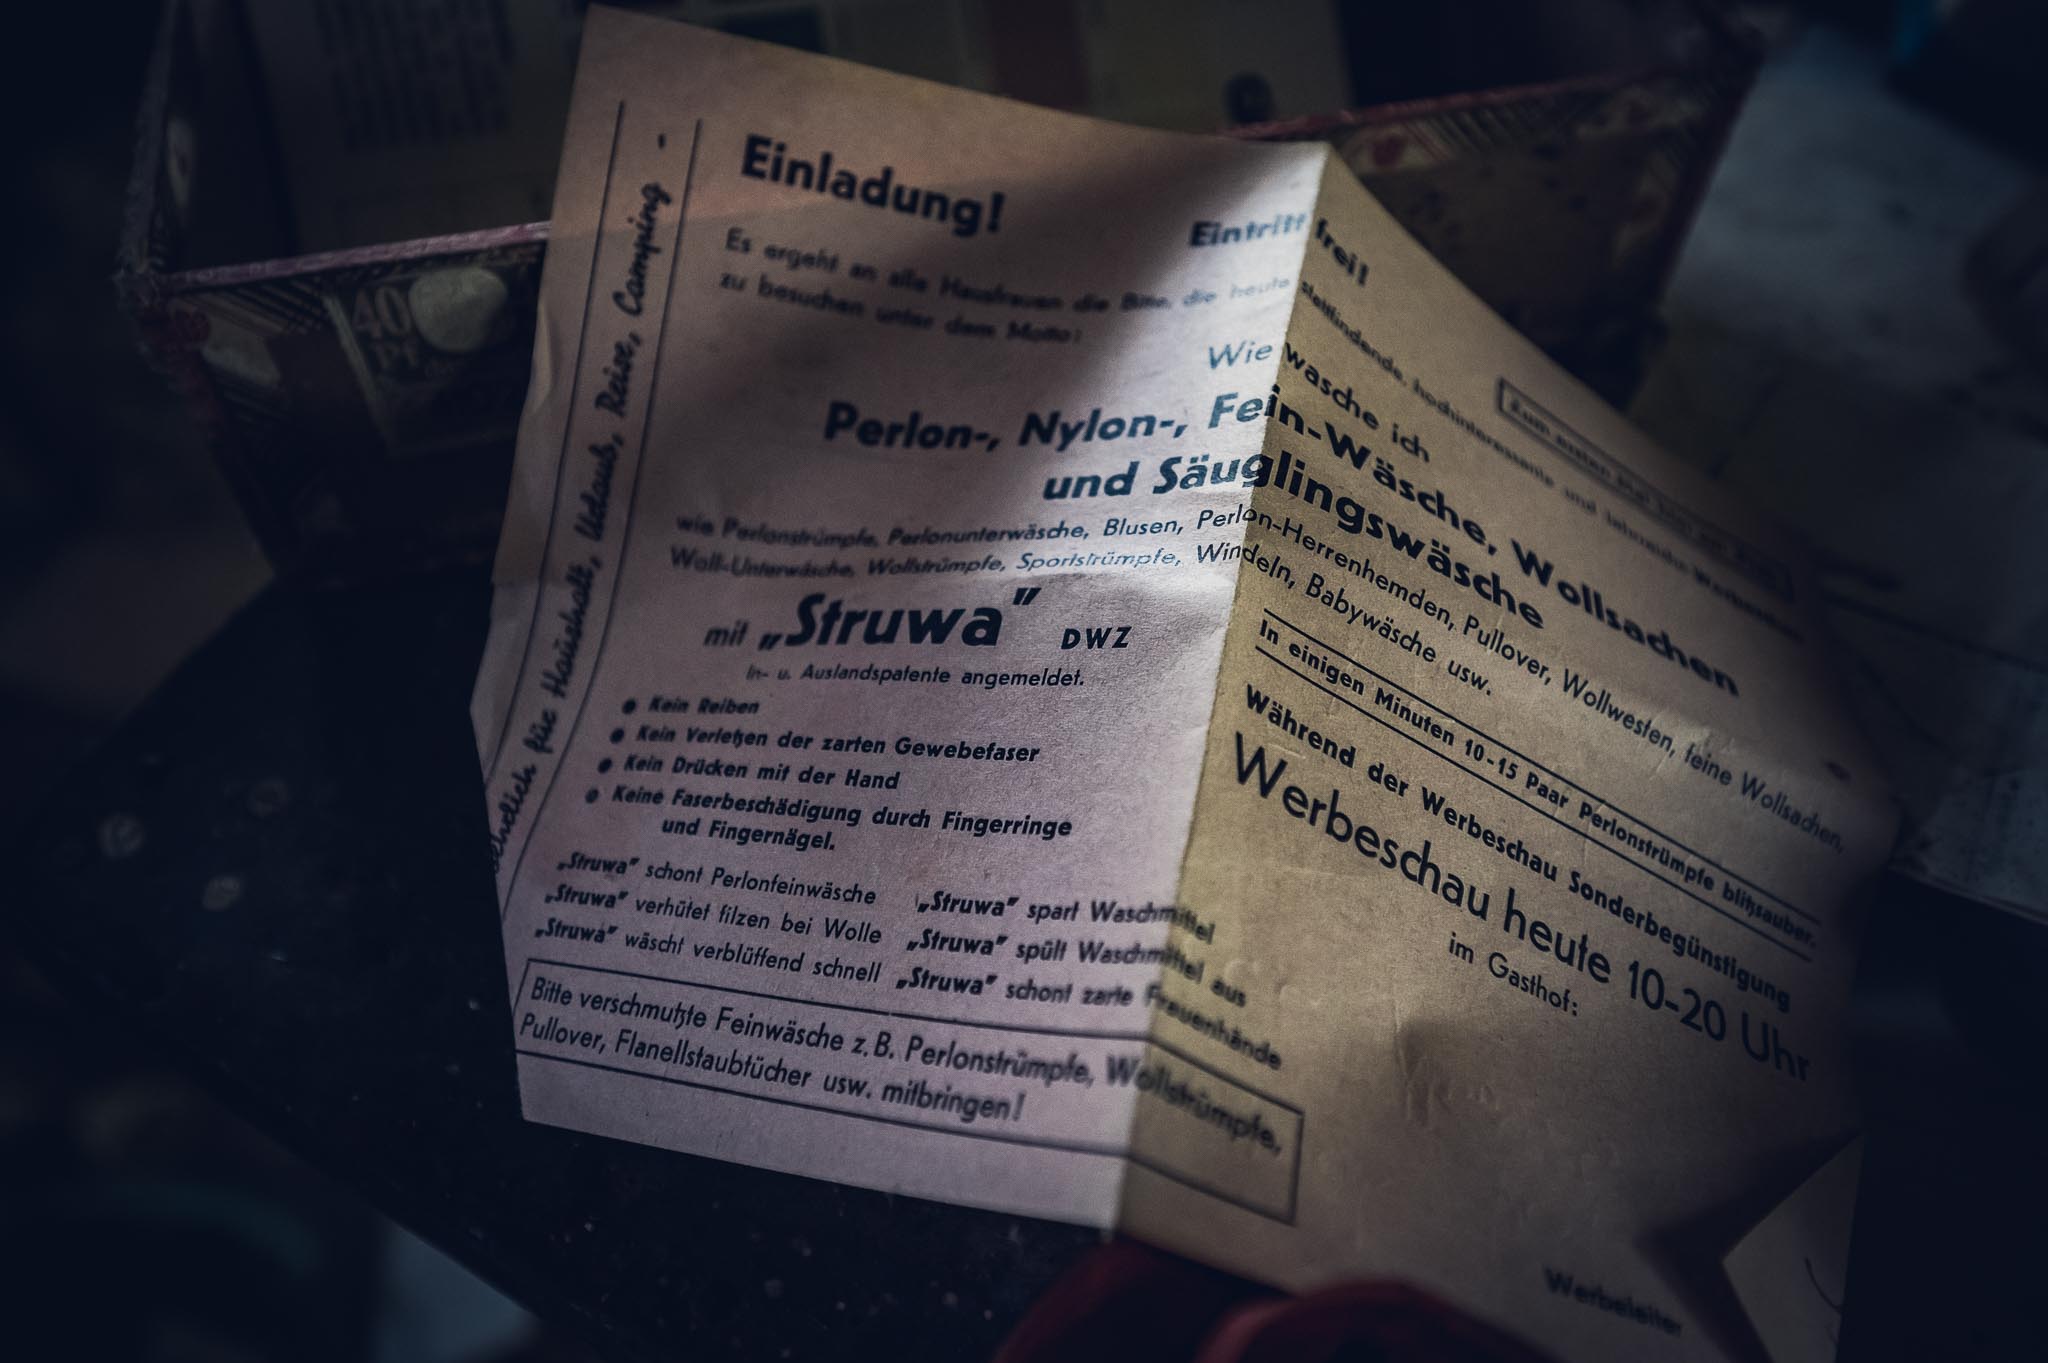 Einladung!
Eintritt frei!
Es ergeht an alle Hausfrauen die Bitte, die heute stattfindende, hochinteressante und lehrreiche Werbeschau
zu besuchen unter dem Motto:
Zum ersten Mal hier am
Wie wasche ich
Perlon-, Nylon-, Fein-Wäsche, Wollsachen
und Säuglingswäsche
wie Perlonstrümpfe, Perlonunterwäsche, Blusen, Perlon-Herrenhemden, Pullover, Wollwesten, feine Wollsachen,
Woll-Unterwäsche, Wollstrümpfe, Sportstrümpfe, Windeln, Babywäsche usw.
mit „Struwa” DWZ
In- u. Auslandspatente angemeldet.
• Kein Reiben
• Kein Verletzen der zarten Gewebefaser
• Kein Drücken mit der Hand
• Keine Faserbeschädigung durch Fingerringe
und Fingernägel.
In einigen Minuten 10-15 Paar Perlonstrümpfe blitzsauber.
Während der Werbeschau Sonderbegünstigung
Werbeschau heute 10-20 Uhr
im Gasthof:
„Struwa” schont Perlonfeinwäsche
„Struwa” verhütet filzen bei Wolle
„Struwa” wäscht verblüffend schnell
„Struwa” spart Waschmittel
„Struwa” spült Waschmittel aus
„Struwa” schont zarte Frauenhände
Bitte verschmutzte Feinwäsche z. B. Perlonstrümpfe, Wollstrümpfe,
Pullover, Flanellstaubtücher usw. mitbringen!
Werbeleiter
für Haushalt, Urlaub, Reise, Camping -
40
Pf